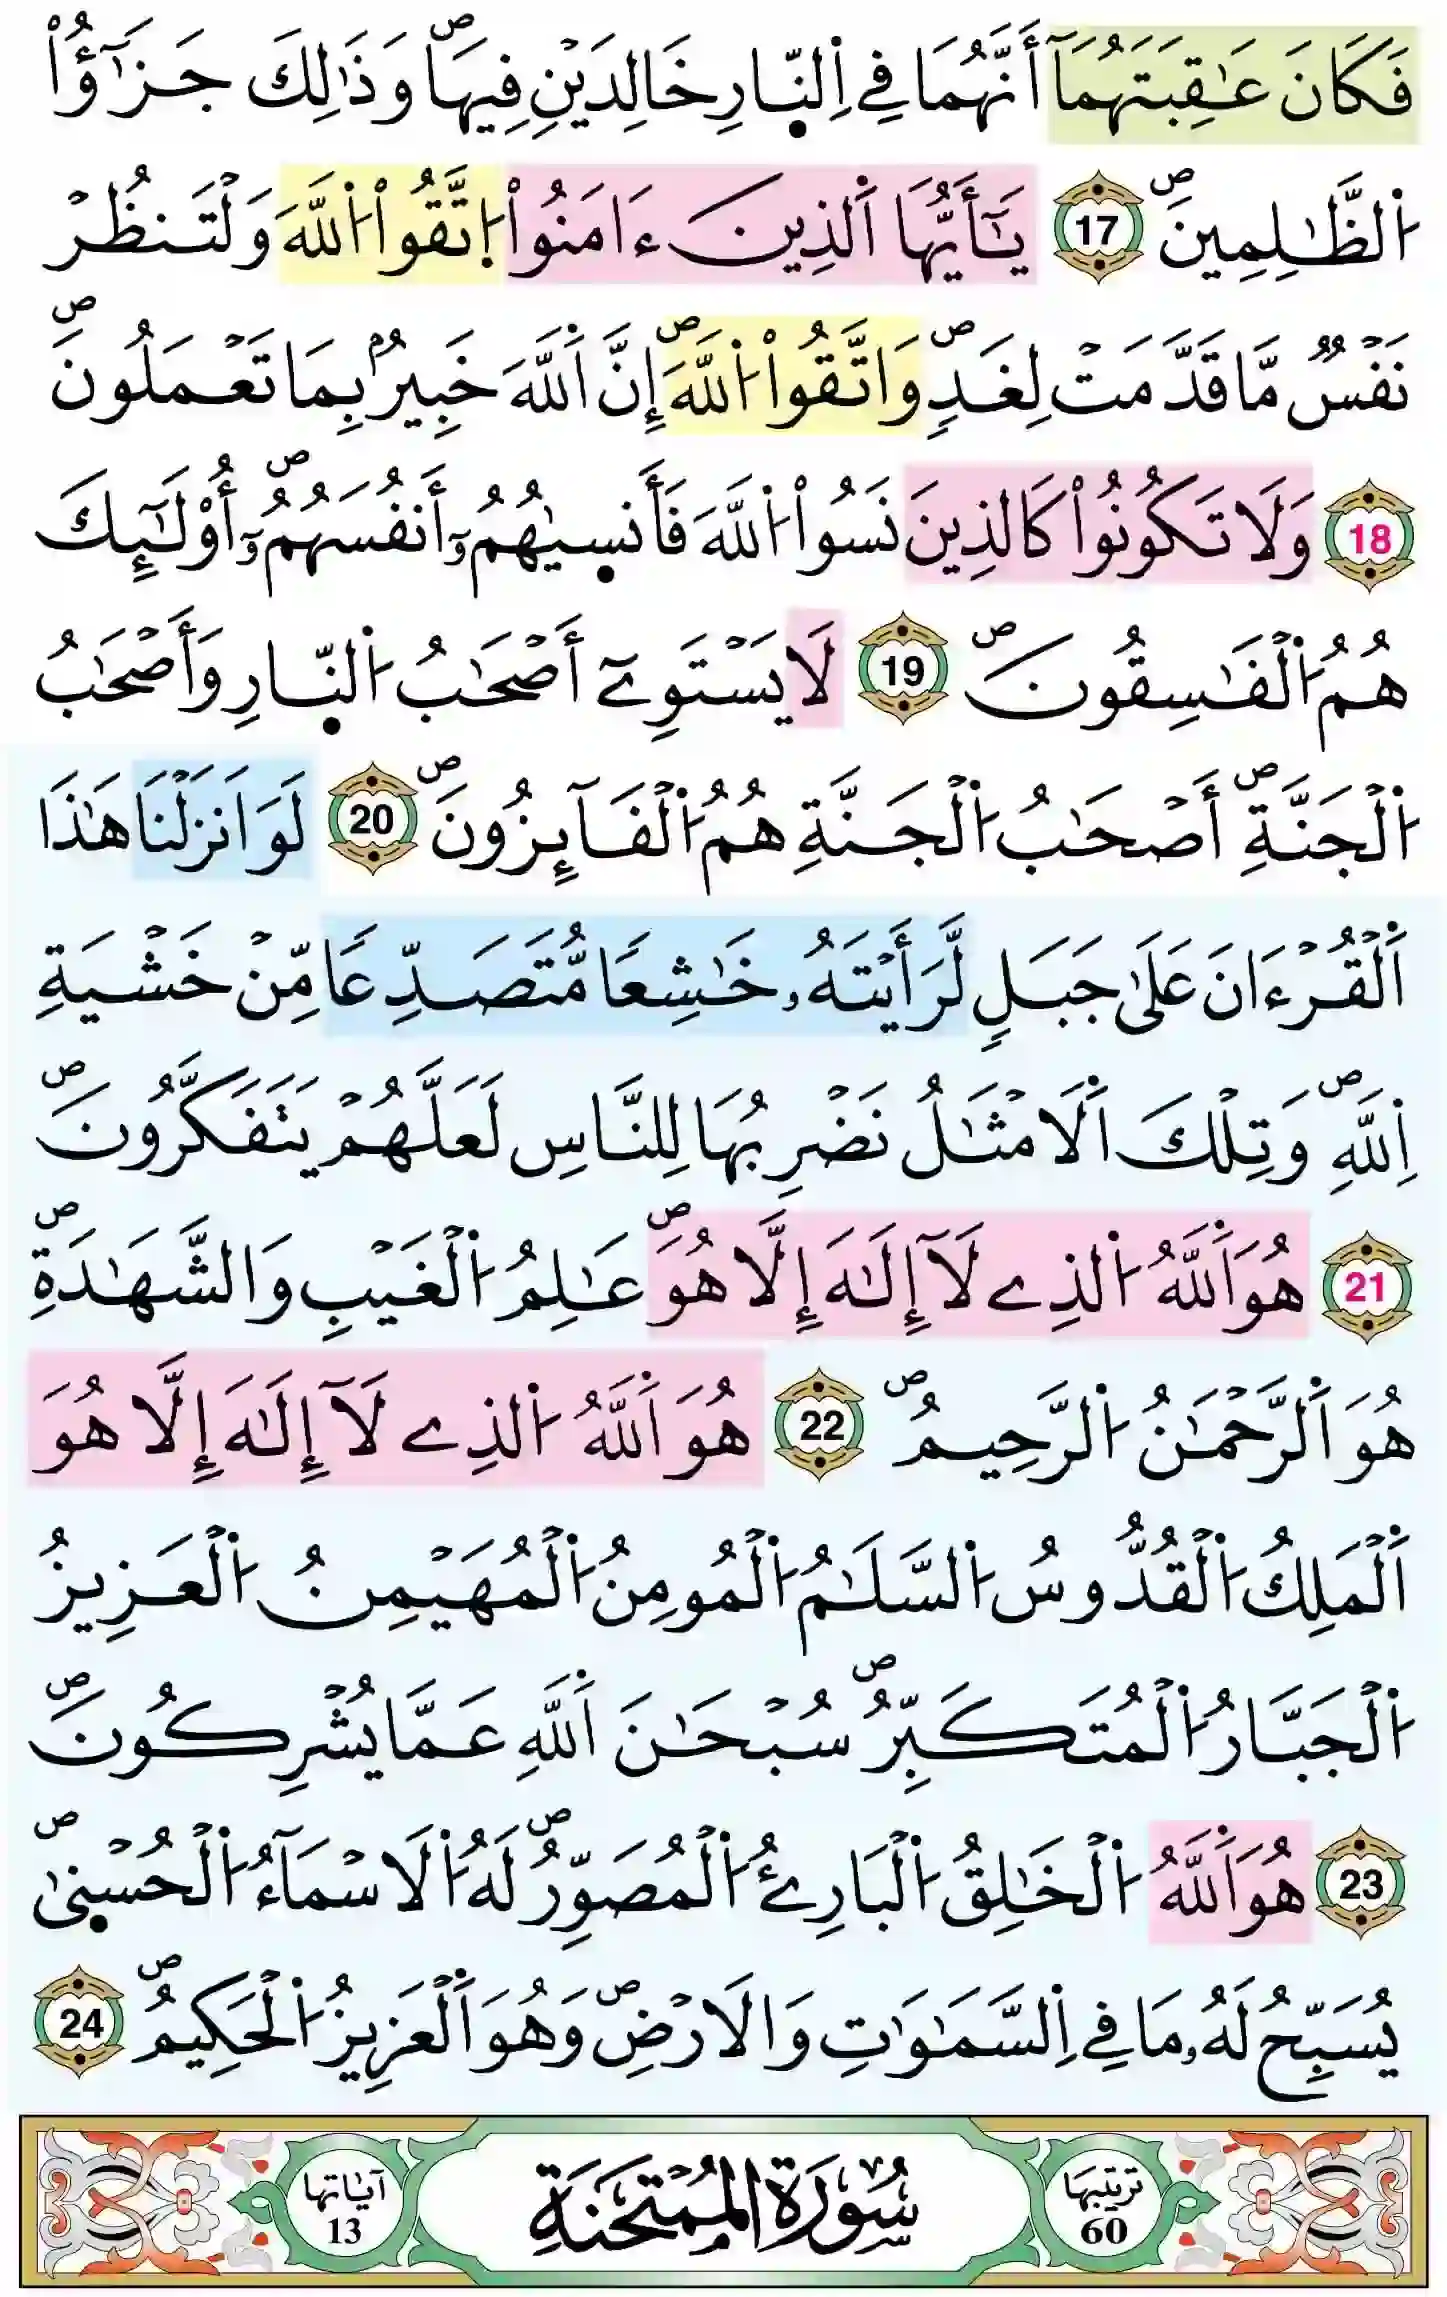 فَكَانَ عَٰقِبَتَهُمَآ أَنَّهُمَا فِے اِ۬لنّ۪ارِ خَٰلِدَيْنِ فِيهَاۖ وَذَٰلِكَ جَزَٰٓؤُاْ
اُ۬لظَّٰلِمِينَۖ 17 يَٰٓأَيُّهَا اَ۬لذِينَ ءَامَنُواْ اُ۪تَّقُواْ اُ۬للَّهَ وَلْتَنظُرْ
نَفْسٞ مَّا قَدَّمَتْ لِغَدٖۖ وَاتَّقُواْ اُ۬للَّهَۖ إِنَّ اَ۬للَّهَ خَبِيرُۢ بِمَا تَعْمَلُونَۖ
18 وَلَا تَكُونُواْ كَالذِينَ نَسُواْ اُ۬للَّهَ فَأَنس۪يٰهُمُۥٓ أَنفُسَهُمُۥٓۖ أُوْلَٰٓئِكَ
هُمُ اُ۬لْفَٰسِقُونَۖ 19 لَا يَسْتَوِےٓ أَصْحَٰبُ اُ۬لنّ۪ارِ وَأَصْحَٰبُ
اُ۬لْجَنَّةِۖ أَصْحَٰبُ اُ۬لْجَنَّةِ هُمُ اُ۬لْفَآئِزُونَۖ 20 لَوَ اَنزَلْنَا هَٰذَا
اَ۬لْقُرْءَانَ عَلَىٰ جَبَلٖ لَّرَأَيْتَهُۥ خَٰشِعاٗ مُّتَصَدِّعاٗ مِّنْ خَشْيَةِ
اِ۬للَّهِۖ وَتِلْكَ اَ۬لَامْثَٰلُ نَضْرِبُهَا لِلنَّاسِ لَعَلَّهُمْ يَتَفَكَّرُونَۖ
21 هُوَ اَ۬للَّهُ اُ۬لذِے لَآ إِلَٰهَ إِلَّا هُوَۖ عَٰلِمُ اُ۬لْغَيْبِ وَالشَّهَٰدَةِۖ
هُوَ اَ۬لرَّحْمَٰنُ اُ۬لرَّحِيمُۖ 22 هُوَ اَ۬للَّهُ اُ۬لذِے لَآ إِلَٰهَ إِلَّا هُوَ
اَ۬لْمَلِكُ اُ۬لْقُدُّوسُ اُ۬لسَّلَٰمُ اُ۬لْمُومِنُ اُ۬لْمُهَيْمِنُ اُ۬لْعَزِيزُ
اُ۬لْجَبَّارُ اُ۬لْمُتَكَبِّرُۖ سُبْحَٰنَ اَ۬للَّهِ عَمَّا يُشْرِكُونَۖ
23 هُوَ اَ۬للَّهُ اُ۬لْخَٰلِقُ اُ۬لْبَارِئُ اُ۬لْمُصَوِّرُۖ لَهُ اُ۬لَاسْمَآءُ اُ۬لْحُسْن۪يٰۖ
يُسَبِّحُ لَهُۥ مَا فِے اِ۬لسَّمَٰوَٰتِ وَالَارْضِۖ وَهُوَ اَ۬لْعَزِيزُ اُ۬لْحَكِيمُۖ 24
ترتيبها 60 سُورَةُ المُمْتَحَنَةِ آياتها 13